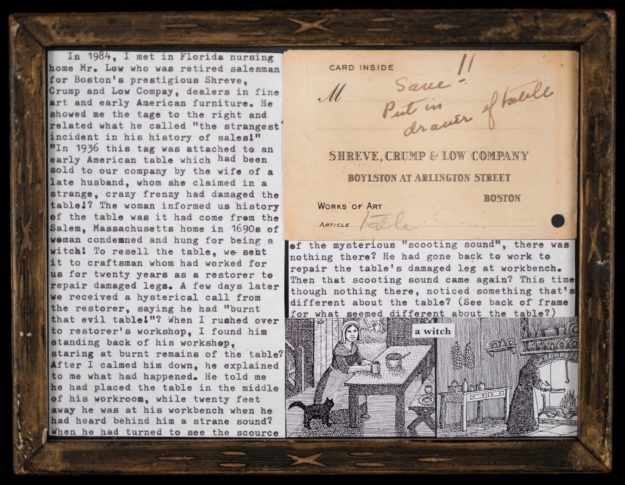 In 1984, I met in Florida nursing
home Mr. Low who was retired salesman
for Boston's prestigious Shreve,
Crump and Low Compay, dealers in fine
art and early American furniture. He
showed me the tage to the right and
related what he called "the strangest
incident in his history of sales!"
"In 1936 this tag was attached to an
early American table which had been
sold to our company by the wife of a
late husband, whom she claimed in a
strange, crazy frenzy had damaged the
table!? The woman informed us history
of the table was it had come from the
Salem, Massachusetts home in 1690s of
woman condemned and hung for being a
witch! To resell the table, we sent
it to craftsman whom had worked for
us for twenty years as a restorer to
repair damaged legs. A few days later
we received a hysterical call from
the restorer, saying he had "burnt
that evil table!"? When I rushed over
to restorer's workshop, I found him
standing back of his workshop,
staring at burnt remains of the table?
After I calmed him down, he explained
to me what had happened. He told me
he had placed the table in the middle
of his workroom, while twenty feet
away he was at his workbench when he
had heard behind him a strane sound?
When he had turned to see the scource
CARD INSIDE
M
Save!!
Put in
drawer of table
SHREVE, CRUMP & LOW COMPANY
BOYLSTON AT ARLINGTON STREET
BOSTON
WORKS OF ART
ARTICLE Table
of the mysterious "scooting sound", there was
nothing there? He had gone back to work to
repair the table's damaged leg at workbench.
Then that scooting sound came again? This time
though nothing there, noticed something that's
different about the table? (See back of frame
for what seemed different about the table?)
a witch